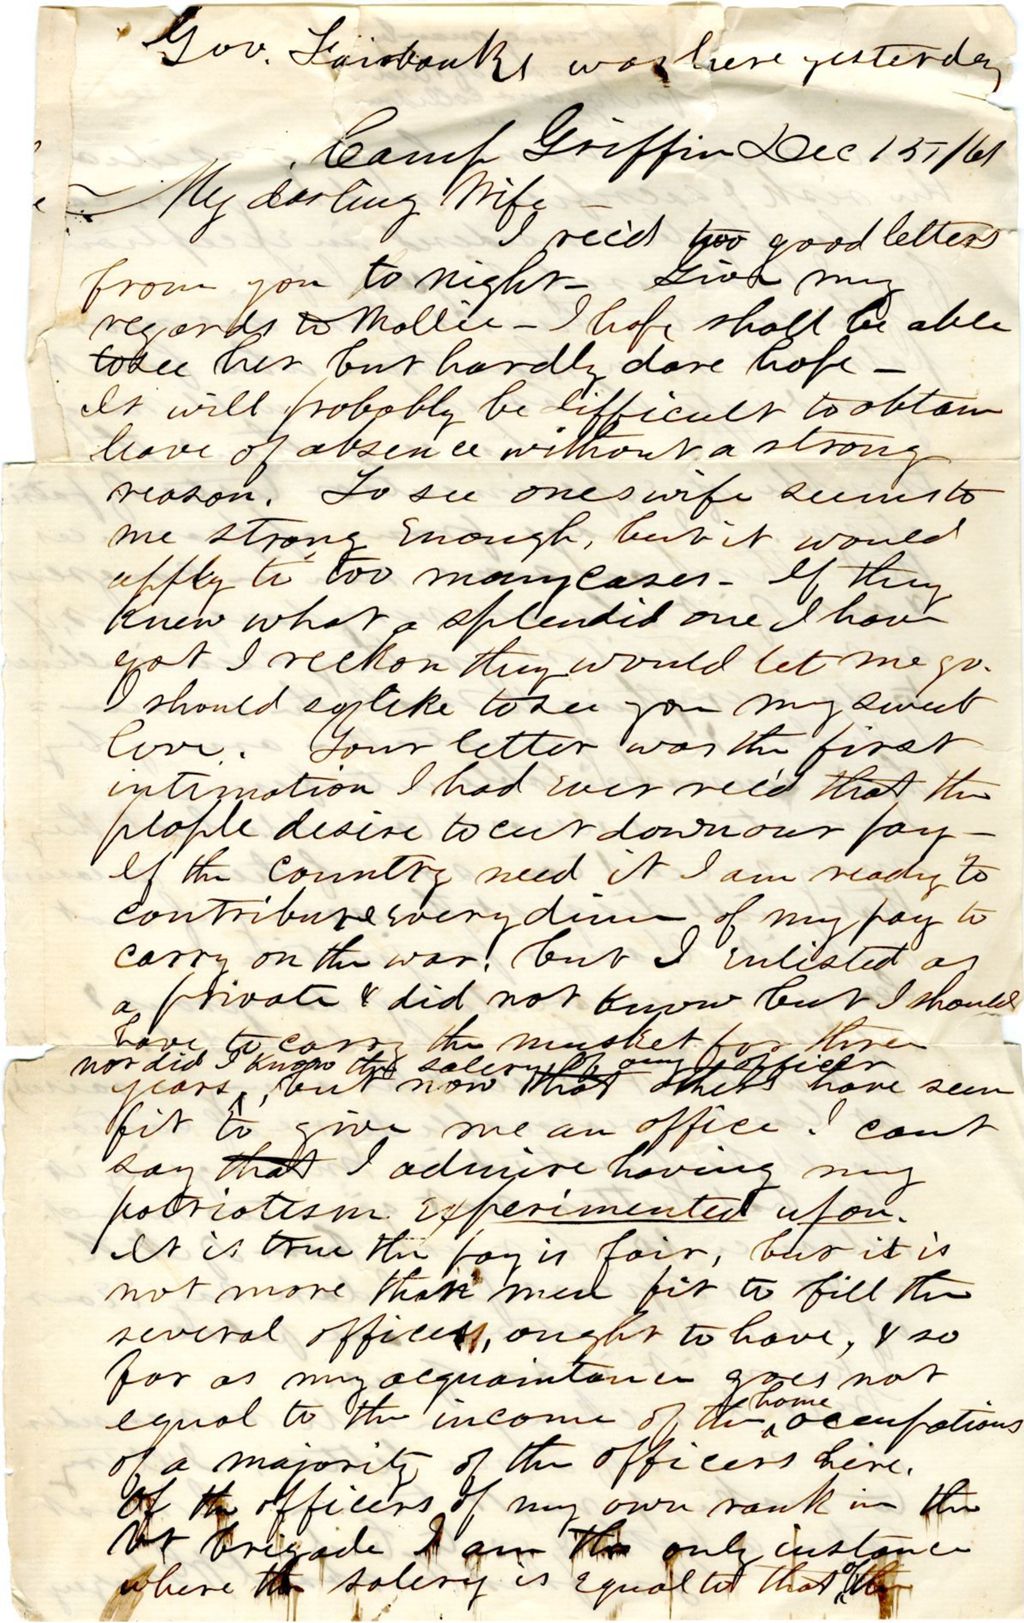 Gov. Fairbanks was here yesterday
Camp Griffin Dec 15/61
My darling Wife –
I rec'd two good letters
from you to night – Give my
regards to Mollie – I hope shall be able
to see her but hardly dare hope –
It will probably be difficult to obtain
leave of absence without a strong
reason. To see ones wife seems to
me strong enough, but it would
apply to too many cases – If they
knew what a splendid one I have
got I reckon they would let me go.
I should so like to see you my sweet
love. Your letter was the first
intimation I had ever rec'd that the
people desire to cut down our pay –
If the country need it I am ready to
contribute every dime of my pay to
carry on the war, but I enlisted as
a private & did not know but I should
have to carry the musket for three
nor did I know the salery of any officer
years, but now that others have seen
fit to give me an office I cant
say that I admire having my
patriotism experimented upon.
It is true the pay is fair, but it is
not more than men fit to fill the
several offices, ought to have, & so
far as my acquaintance goes not
equal to the income of the home occupations
of a majority of the officers here.
Of the officers of my own rank in the
Vt brigade I am the only instance
where the salery is equal to that of the